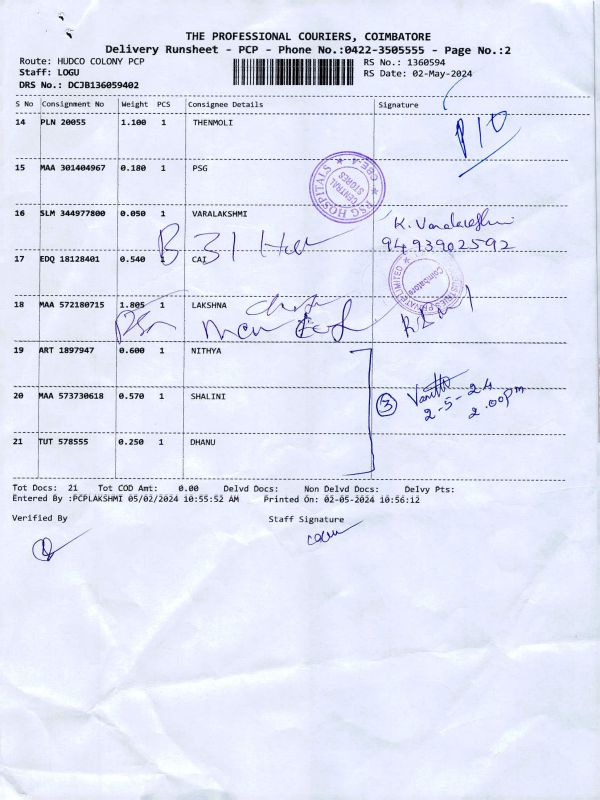 THE PROFESSIONAL COURIERS, COIMBATORE
Delivery Runsheet - PCP - Phone No.:0422-3505555 - Page No.:2
Route: HUDCO COLONY PCP RS No.: 1360594
Staff: LOGU RS Date: 02-May-2024
DRS No.: DCJB136059402
S No Consignment No Weight PCS Consignee Details Signature
14 PLN 20055 1.100 1 THENMOLI
P/O
15 MAA 301404967 0.180 1 PSG
PSG HOSPITALS CENTRAL STORES CBE-4
16 SLM 344977800 0.050 1 VARALAKSHMI K. Varalakshmi
9493902592
B 31
17 EDQ 18128401 0.540 1 CAI
Coimbatore PRIVATE LIMITED
18 MAA 572180715 1.805 1 LAKSHNA
19 ART 1897947 0.600 1 NITHYA
20 MAA 573730618 0.570 1 SHALINI 3
2-5-24
2.00pm
21 TUT 578555 0.250 1 DHANU
Tot Docs: 21 Tot COD Amt: 0.00 Delvd Docs: Non Delvd Docs: Delvy Pts:
Entered By :PCPLAKSHMI 05/02/2024 10:55:52 AM Printed On: 02-05-2024 10:56:12
Verified By Staff Signature